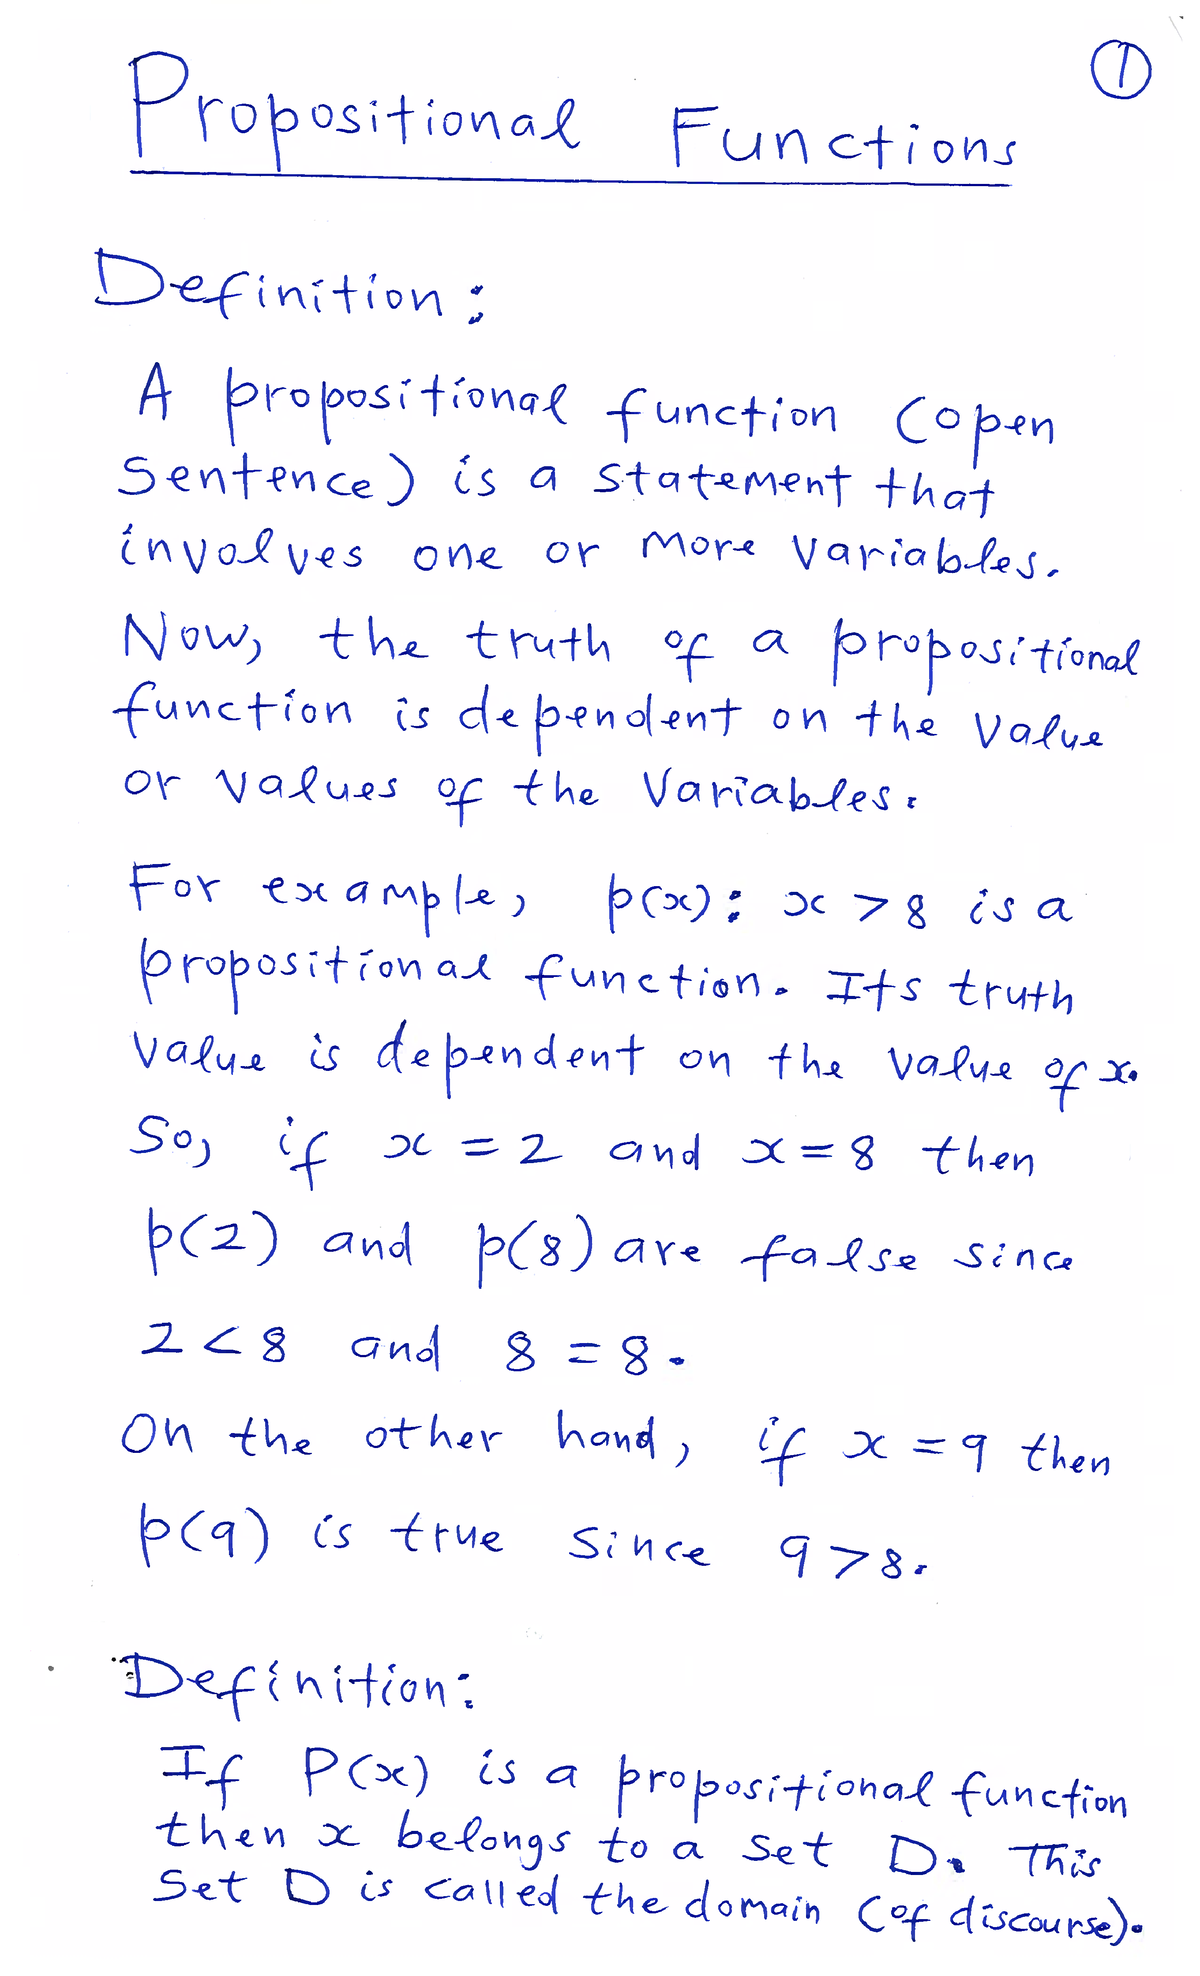 ①
Propositional Functions
Definition:
A propositional function (open
sentence) is a statement that
involves one or more variables.
Now, the truth of a propositional
function is dependent on the value
or values of the variables.
For example, p(x): x > 8 is a
propositional function. Its truth
value is dependent on the value of x.
So, if x = 2 and x = 8 then
p(2) and p(8) are false since
2 < 8 and 8 = 8.
On the other hand, if x = 9 then
p(9) is true since 9 > 8.
Definition:
If P(x) is a propositional function
then x belongs to a set D. This
set D is called the domain (of discourse).